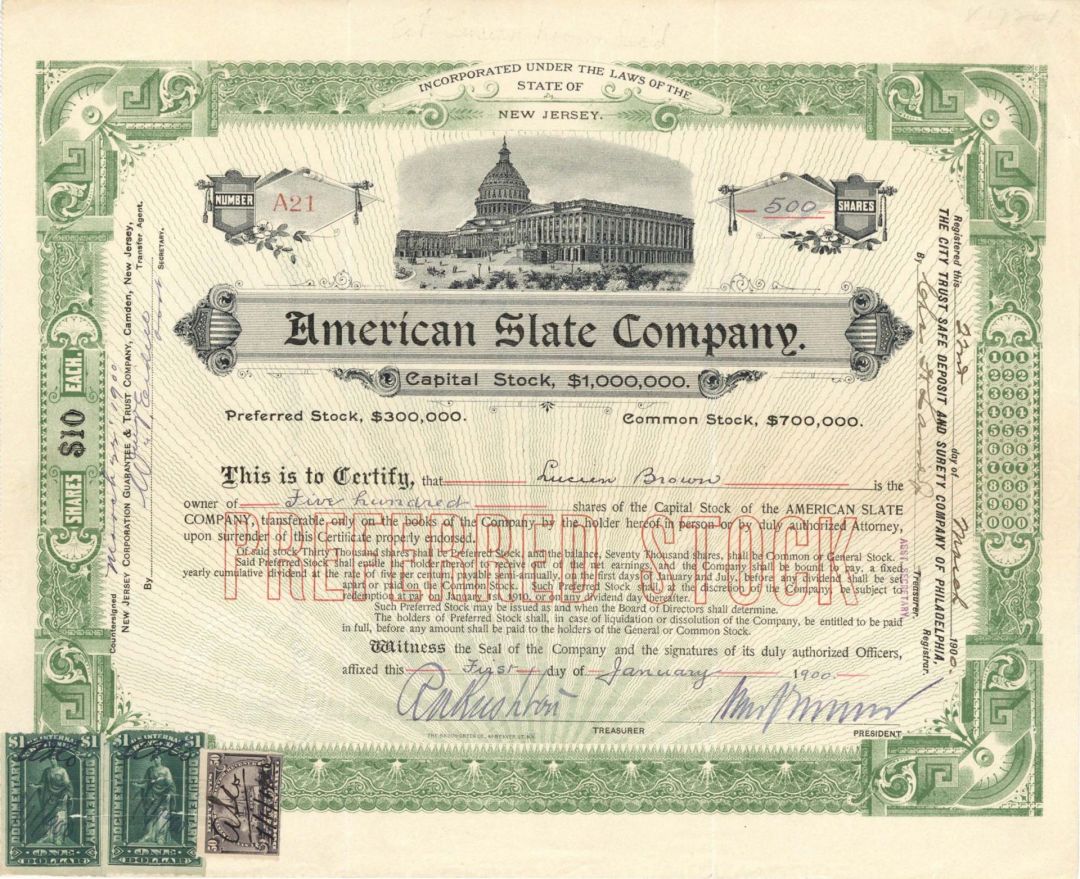 INCORPORATED UNDER THE LAWS OF THE
STATE OF
NEW JERSEY.
NUMBER
A21
500
SHARES
American Slate Company.
Capital Stock, $1,000,000.
Preferred Stock, $300,000.
Common Stock, $700,000.
This is to Certify, that Lucien Brown is the
owner of Five hundred shares of the Capital Stock of the AMERICAN SLATE
COMPANY, transferable only on the books of the Company by the holder hereof in person or by duly authorized Attorney,
upon surrender of this Certificate properly endorsed.
PREFERRED STOCK
Of said stock Thirty Thousand shares shall be Preferred Stock, and the balance, Seventy Thousand shares, shall be Common or General Stock.
Said Preferred Stock shall entitle the holder hereof to receive out of the net earnings, and the Company shall be bound to pay, a fixed
yearly cumulative dividend at the rate of five per centum, payable semi-annually, on the first days of January and July, before any dividend shall be set
apart or paid on the Common Stock. Such Preferred Stock shall, at the discretion of the Company, be subject to
redemption at par on January 1, 1910, or on any dividend day thereafter.
Such Preferred Stock may be issued as and when the Board of Directors shall determine.
The holders of Preferred Stock shall, in case of liquidation or dissolution of the Company, be entitled to be paid
in full, before any amount shall be paid to the holders of the General or Common Stock.
Witness the Seal of the Company and the signatures of its duly authorized Officers,
affixed this First day of January 1900.
TREASURER
PRESIDENT
SHARES $10 EACH.
Countersigned March 22' 1900
NEW JERSEY CORPORATION GUARANTEE & TRUST COMPANY, Camden, New Jersey,
Transfer Agent.
By
SECRETARY.
Registered this 22nd day of March 1900.
THE CITY TRUST SAFE DEPOSIT AND SURETY COMPANY OF PHILADELPHIA,
Registrar.
By
Treasurer.
ASST SECRETARY
111
222
333
444
555
666
777
888
999
000
$1 INTERNAL REVENUE $1
DOCUMENTARY
DOCUMENTARY
ONE
DOLLAR
$1 INTERNAL REVENUE $1
DOCUMENTARY
DOCUMENTARY
ONE
DOLLAR
50
50
50